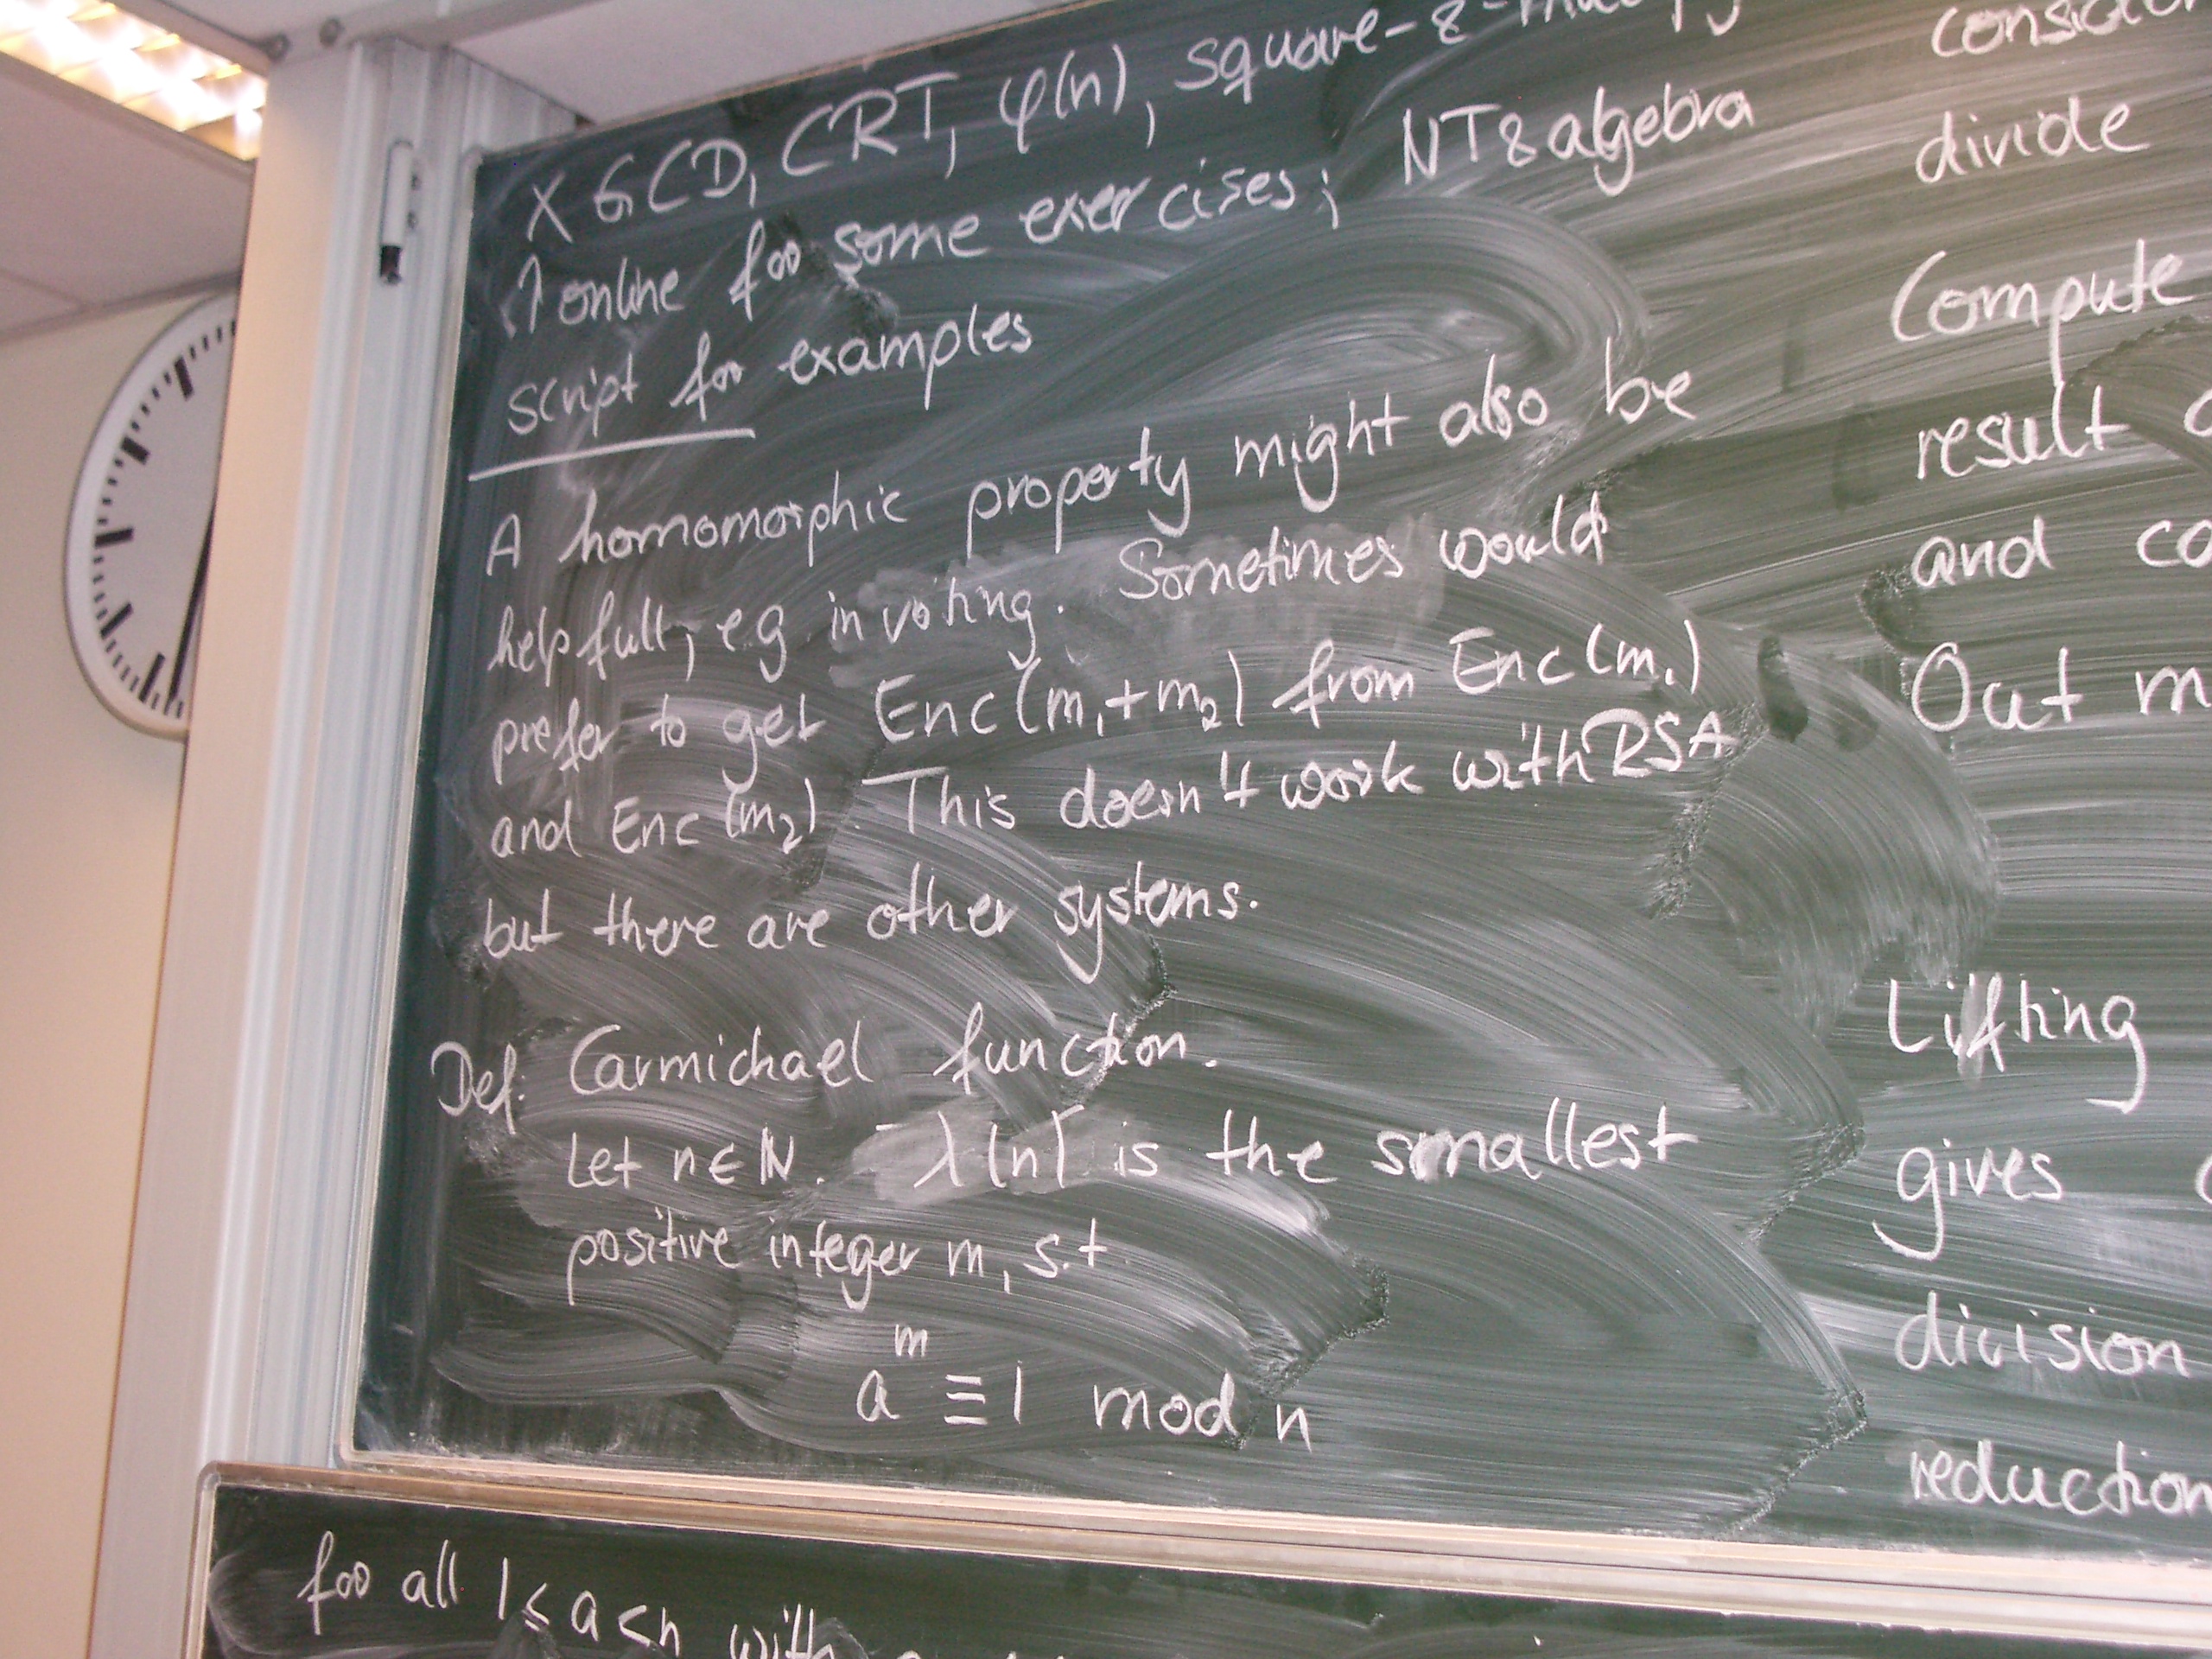 XGCD, CRT, φ(n), square-&-
↑ online for some exercises; NT & algebra
script for examples
A homomorphic property might also be
helpfull, eg. in voting. Sometimes would
prefer to get Enc(m₁+m₂) from Enc(m₁)
and Enc(m₂). This doesn't work with RSA
but there are other systems.
Def: Carmichael function.
Let n∈ℕ. λ(n) is the smallest
positive integer m, s.t.
aᵐ ≡ 1 mod n
for all 1≤a<n with
divide
Compute
result
and
Out
Lifting
gives
division
reduction